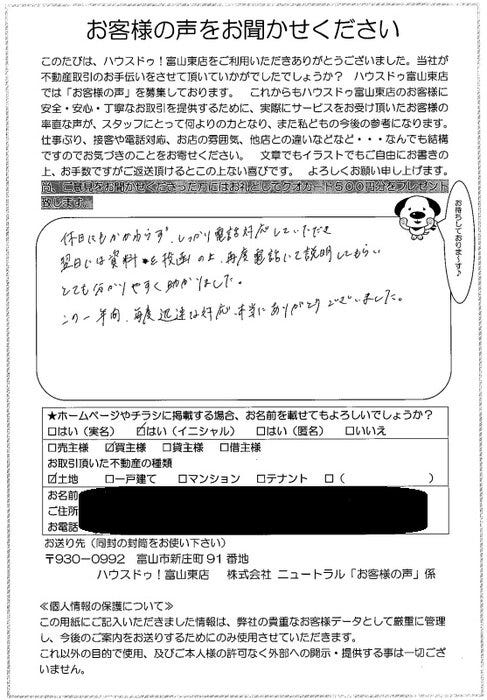 お客様の声をお聞かせください
このたびは、ハウスドゥ！富山東店をご利用いただきありがとうございました。当社が
不動産取引のお手伝いをさせて頂いていかがでしたでしょうか？　ハウスドゥ富山東店
では「お客様の声」を募集しております。　これからもハウスドゥ富山東店のお客様に
安全・安心・丁寧なお取引を提供するために、実際にサービスをお受け頂いたお客様の
率直な声が、スタッフにとって何よりの力となり、また私どもの今後の参考になります。
仕事ぶり、接客や電話対応、お店の雰囲気、他店との違いなどなど・・・なんでも結構
ですのでお気づきのことをお寄せください。　文章でもイラストでもご自由にお書きの
上、お手数ですがご返送頂けるとこの上ない喜びです。　よろしくお願い申し上げます。
尚、ご意見をお聞かせくださった方にはお礼としてクオカード５００円分をプレゼント
致します。
お待ちしております～♪
休日にもかかわらず、しっかり電話対応していただき
翌日には資料を投函の上、再度電話にて説明してもらい
とても分かりやすく助かりました。
この一年間、毎度迅速な対応、本当にありがとうございました。
★ホームページやチラシに掲載する場合、お名前を載せてもよろしいでしょうか？
□はい（実名）　☑はい（イニシャル）　□はい（匿名）　□いいえ
□売主様　☑買主様　□貸主様　□借主様
お取引頂いた不動産の種類
☑土地　□一戸建て　□マンション　□テナント　□（　　　　　　）
お名前
ご住所
お電話
お送り先（同封の封筒をお使い下さい）
〒930-0992　富山市新庄町91番地
ハウスドゥ！富山東店　株式会社 ニュートラル「お客様の声」係
≪個人情報の保護について≫
この用紙にご記入いただきました情報は、弊社の貴重なお客様データとして厳重に管理
し、今後のご案内をお送りするためにのみ使用させていただきます。
これ以外の目的で使用、及びご本人様の許可なく外部への開示・提供する事は一切ござ
いません。